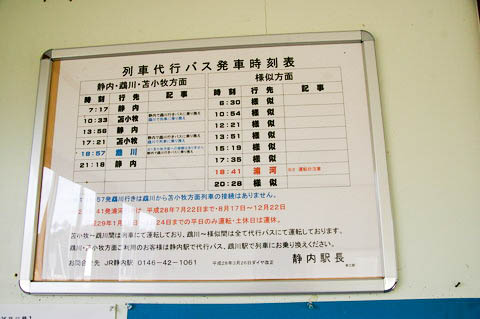 列車代行バス発車時刻表
静内・鵡川・苫小牧方面
時刻 行先 記事
7:17 静内
10:33 苫小牧
13:56 静内
17:21 苫小牧
18:57 鵡川
21:18 静内
様似方面
時刻 行先 記事
6:30 様似
10:54 様似
12:21 様似
13:51 様似
15:19 様似
17:35 様似
18:41 浦河
20:28 様似
57発鵡川行きは鵡川から苫小牧方面列車の接続はありません。
41発浦河 は、平成28年7月22日まで・8月17日～12月22日
29年1月 24日までの平日のみ運転・土休日は運休。
苫小牧～鵡川間は列車にて運転しており、鵡川～様似間は全て代行バスにて運転しております。
鵡川・苫小牧方面ご利用のお客様は静内駅で代行バス、鵡川駅で列車にお乗り換えください。
お問合せ先 JR静内駅 0146-42-1061
平成28年3月26日ダイヤ改正
静内駅長